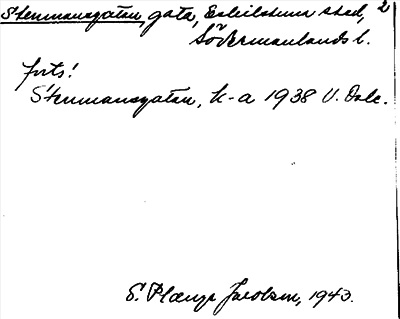 Stenmansgatan, gata, Eskilstuna stad, 2
Södermanlands l.
forts!
Stenmansgatan, k-a 1938 U. Dale.
S. Jacobson, 1943.